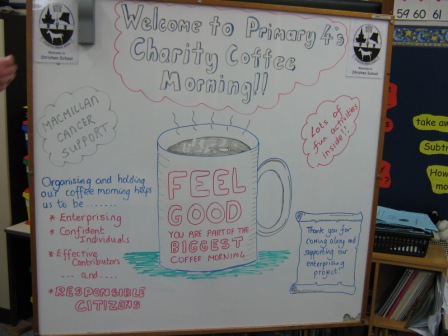 Welcome to Primary 4's
Charity Coffee
Morning!!
Welcome to
Strichen School
Strichen School
MACMILLAN
CANCER
SUPPORT
Lots of
fun activities
inside!!
FEEL
GOOD
YOU ARE PART OF THE
BIGGEST
COFFEE MORNING
Organising and holding
our coffee morning helps
us to be .......
* Enterprising
* Confident
Individuals
* Effective
Contributors
... and ....
* RESPONSIBLE
CITIZENS
Thank you for
coming along and
supporting our
enterprising
project!
59 60 61
take aw
Subtr
How
mo